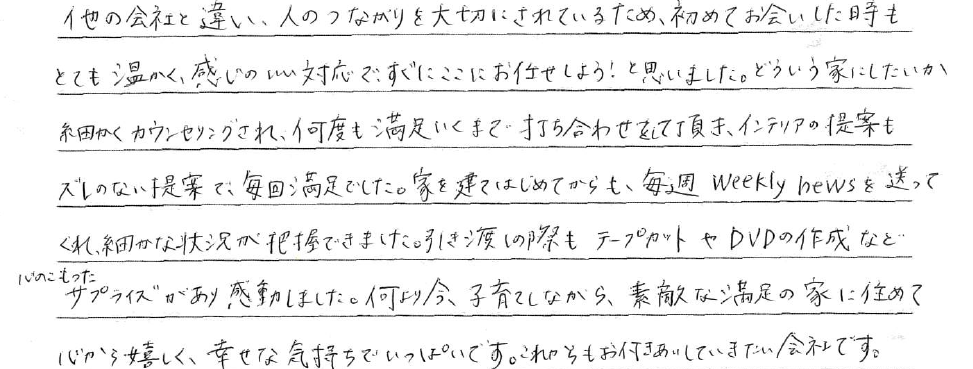 他の会社と違い、人のつながりを大切にされているため、初めてお会いした時も
とても温かく、感じのいい対応で、すぐにここにお任せしよう！と思いました。どういう家にしたいか、
細かくカウンセリングされ、何度も満足いくまで打ち合わせをして頂き、インテリアの提案も
ズレのない提案で、毎回満足でした。家を建てはじめてからも、毎週 Weekly newsを送って
くれ、細かな状況が把握できました。引き渡しの際も テープカットやDVDの作成など
心のこもった
サプライズがあり感動しました。何より今、子育てしながら、素敵な満足の家に住めて
心から嬉しく、幸せな気持ちでいっぱいです。これからもお付きあいしていきたい会社です。